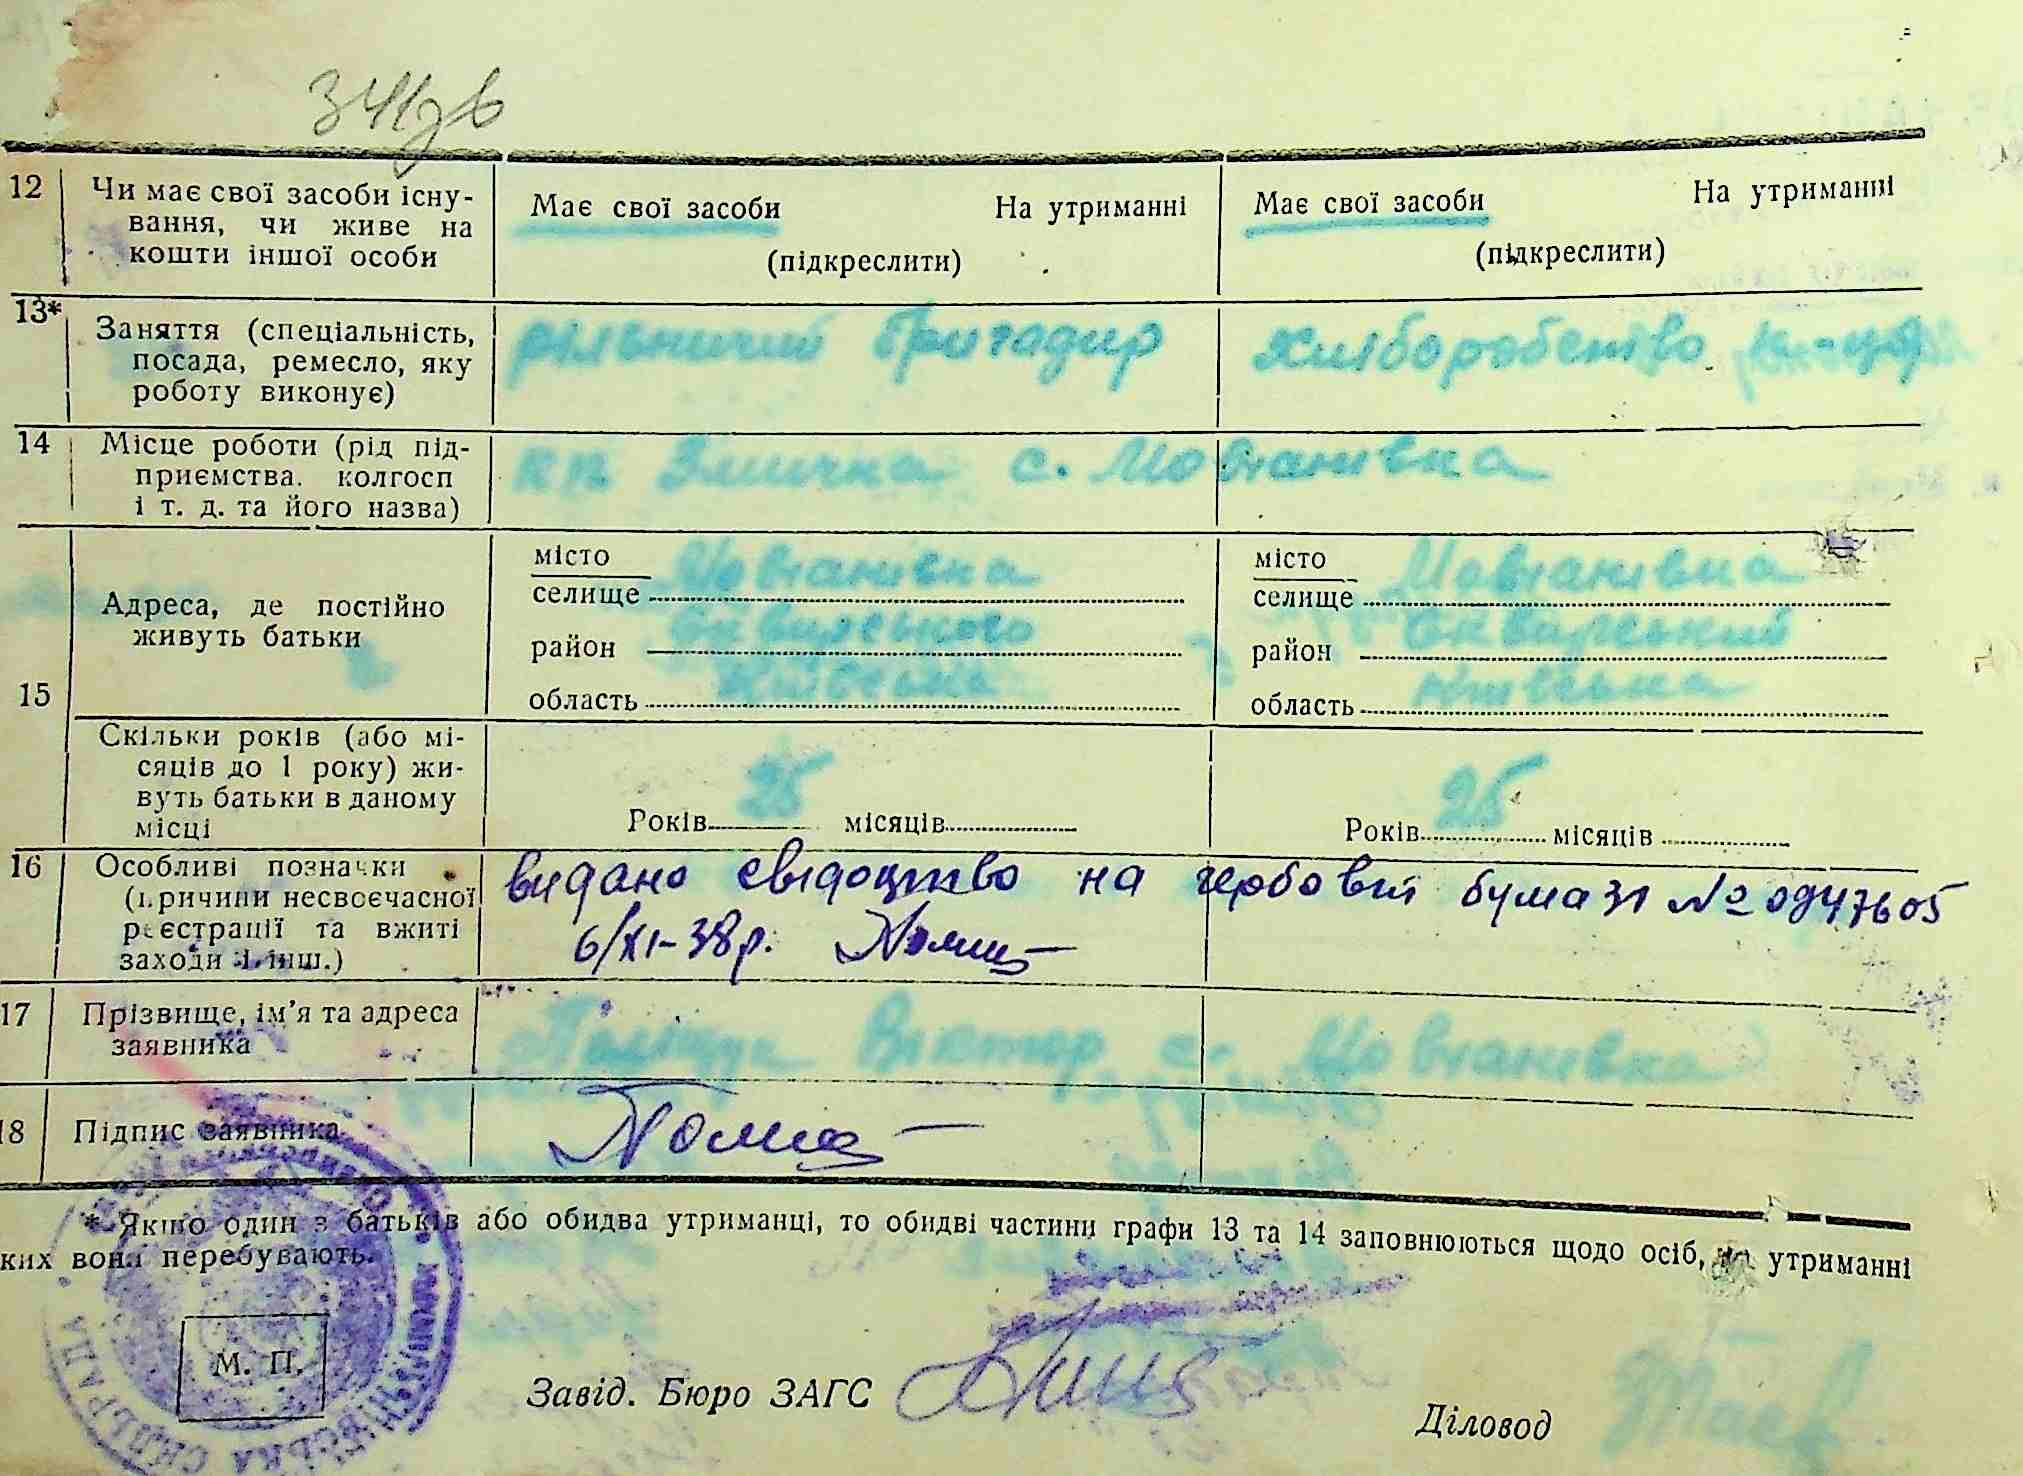 12 Чи має свої засоби існу-
вання, чи живе на
кошти іншої особи
Має свої засоби На утриманні
(підкреслити)
Має свої засоби На утриманні
(підкреслити)
13* Заняття (спеціальність,
посада, ремесло, яку
роботу виконує)
рільничий бригадир
хліборобство
14 Місце роботи (рід під-
приємства. колгосп
і т. д. та його назва)
кп Змичка с. Мовчанівка
15 Адреса, де постійно
живуть батьки
місто
селище Мовчанівка
район Сквирського
область Київська
місто
селище Мовчанівка
район Сквирський
область Київська
Скільки років (або мі-
сяців до 1 року) жи-
вуть батьки в даному
місці
Років 25 місяців
Років 25 місяців
16 Особливі позначки
(причини несвоєчасної
реєстрації та вжиті
заходи і інш.)
видано свідоцтво на гербовій бумазі № 0947605
6/XI-38р.
17 Прізвище, ім'я та адреса
заявника
Поліщук Віктор с. Мовчанівка
18 Підпис заявника
* Якщо один з батьків або обидва утриманці, то обидві частини графи 13 та 14 заповнюються щодо осіб, на утриманні
ких вони перебувають.
М. П.
Завід. Бюро ЗАГС
Діловод